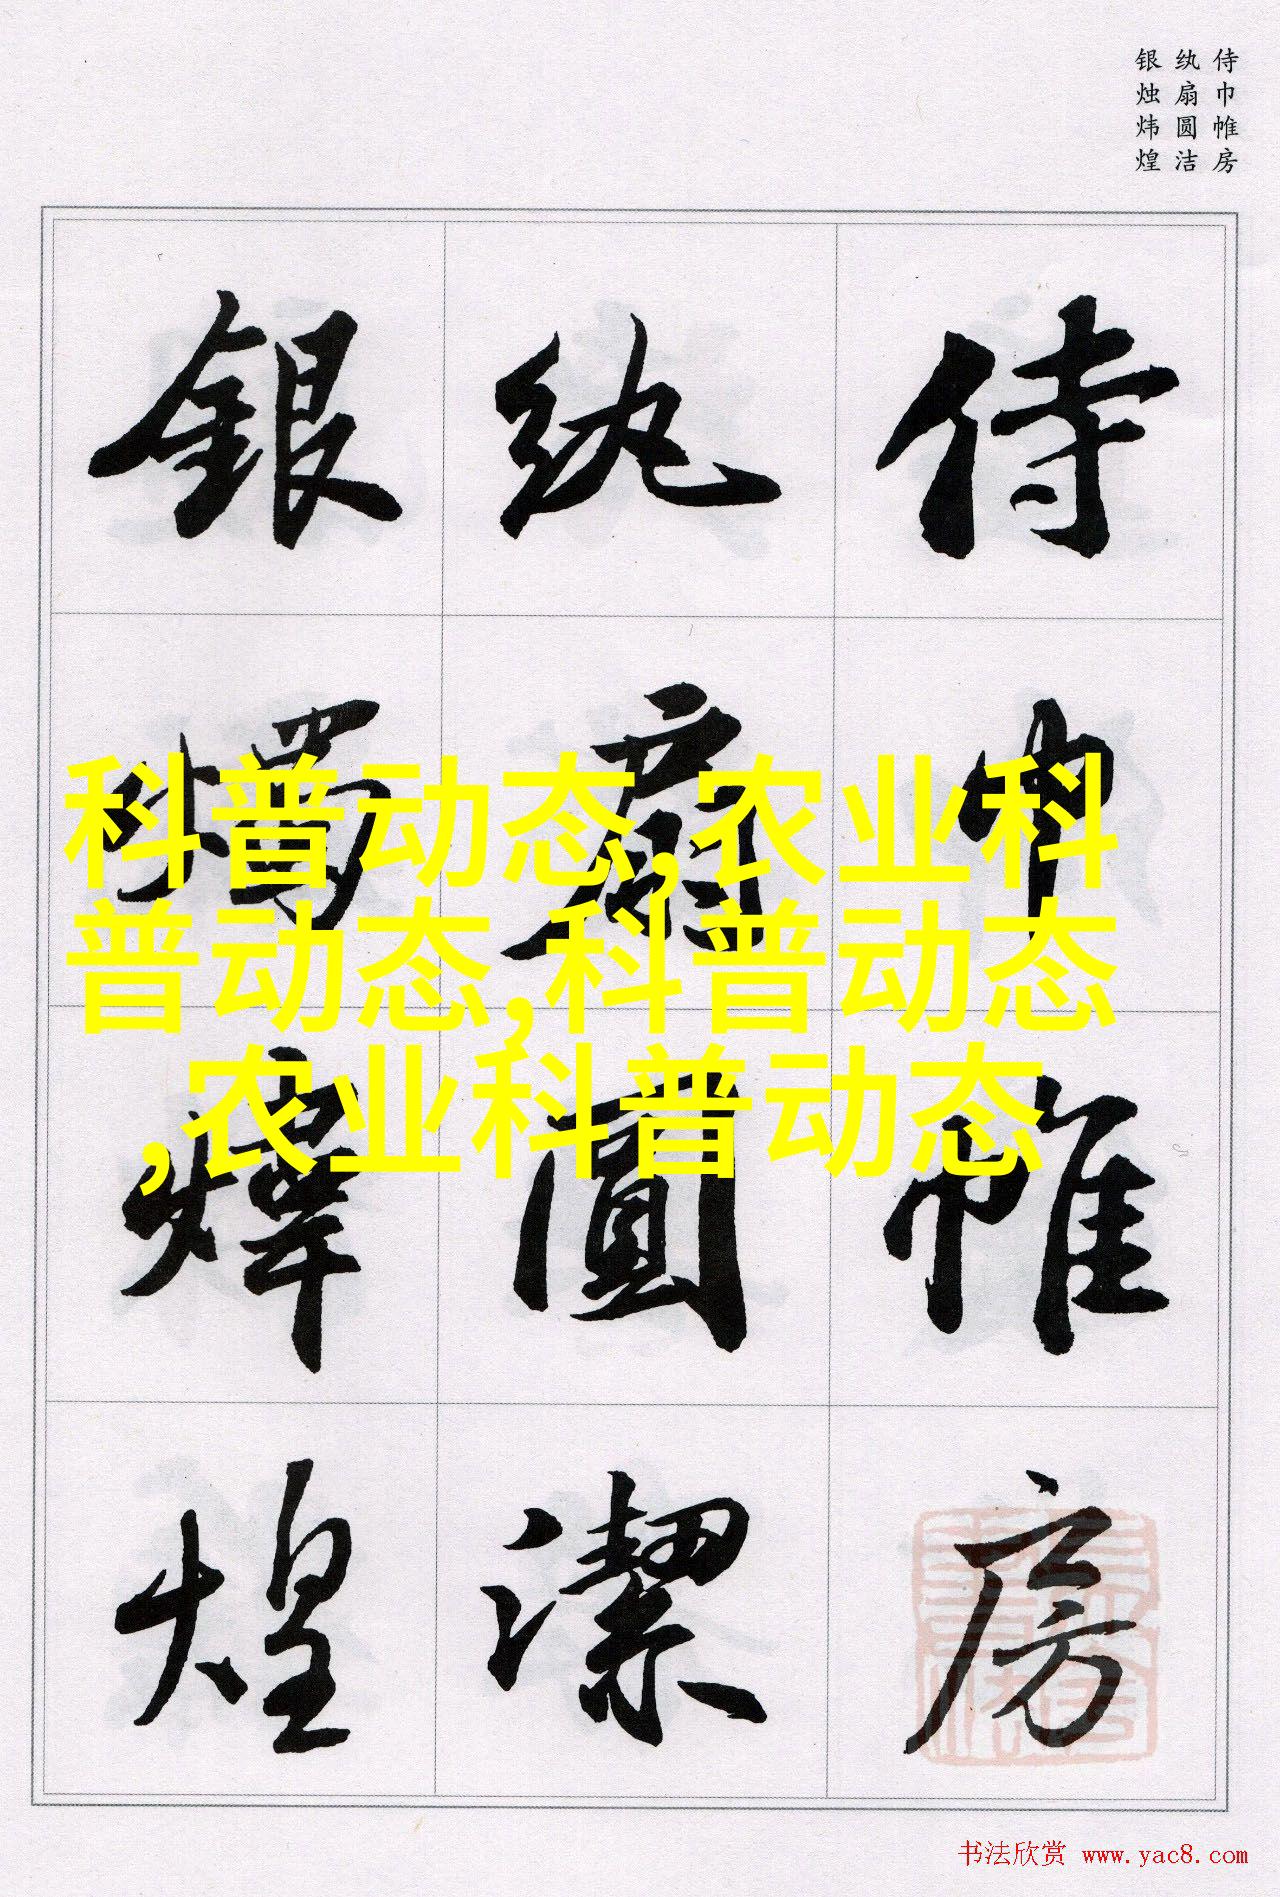 侍巾帷房
纨扇圆洁
银烛炜煌
侍巾帷房
纨扇圓潔
銀燭煒煌
科普动态,农业科
普动态,科普动态
,农业科普动态
书法欣赏 www.yac8.com